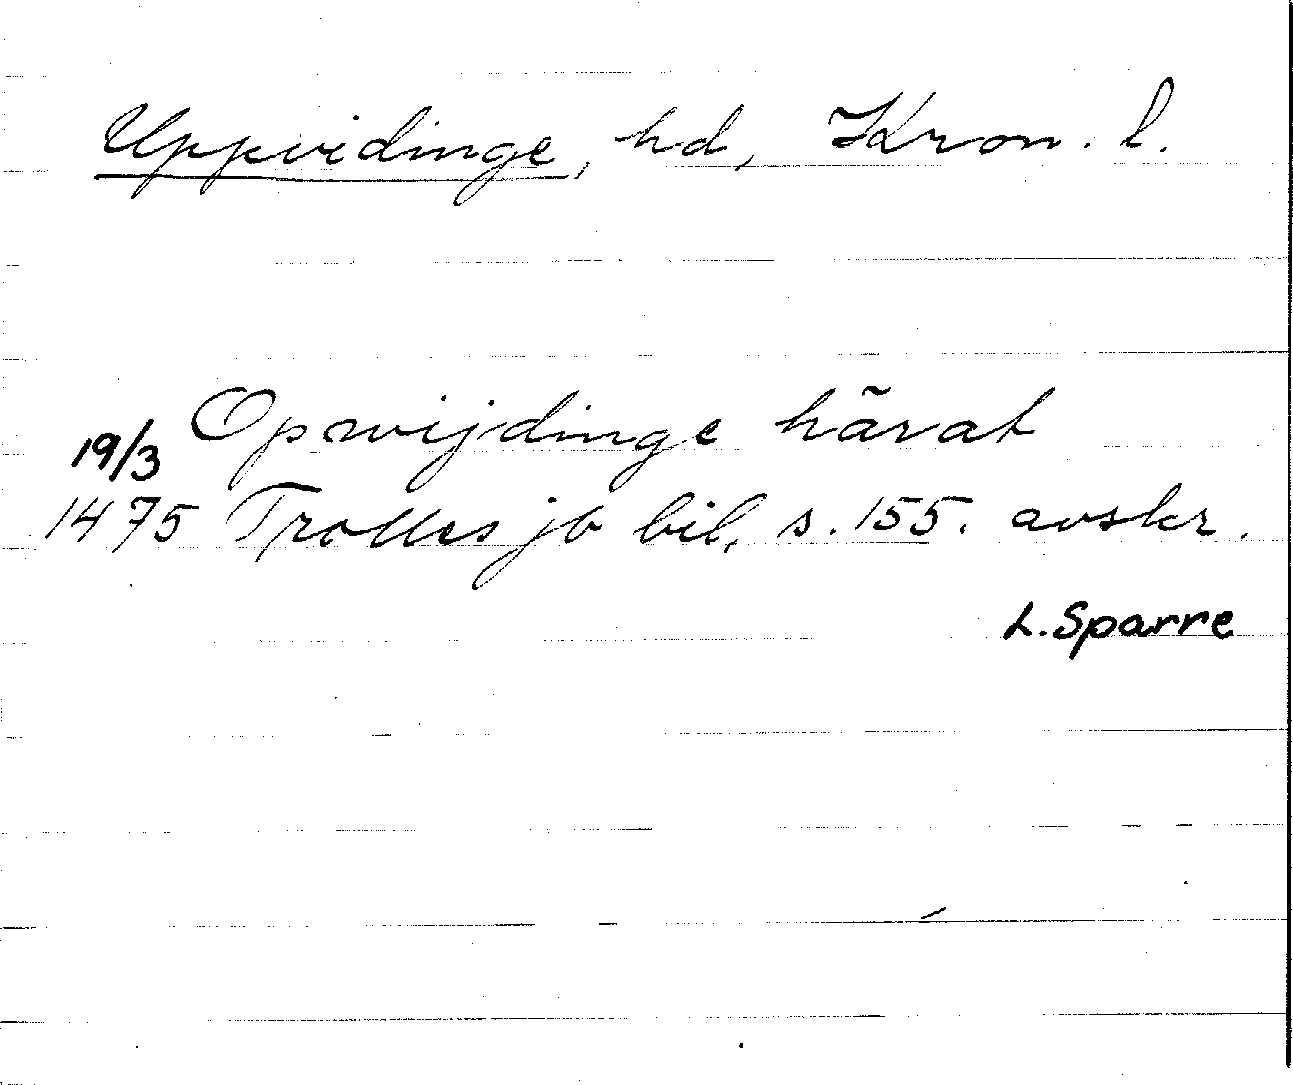 Uppvidinge, hd, Kron. l.
Opwijdinge härat
19/3
1475 Trolles jb bil. s. 155. avskr.
L. Sparre